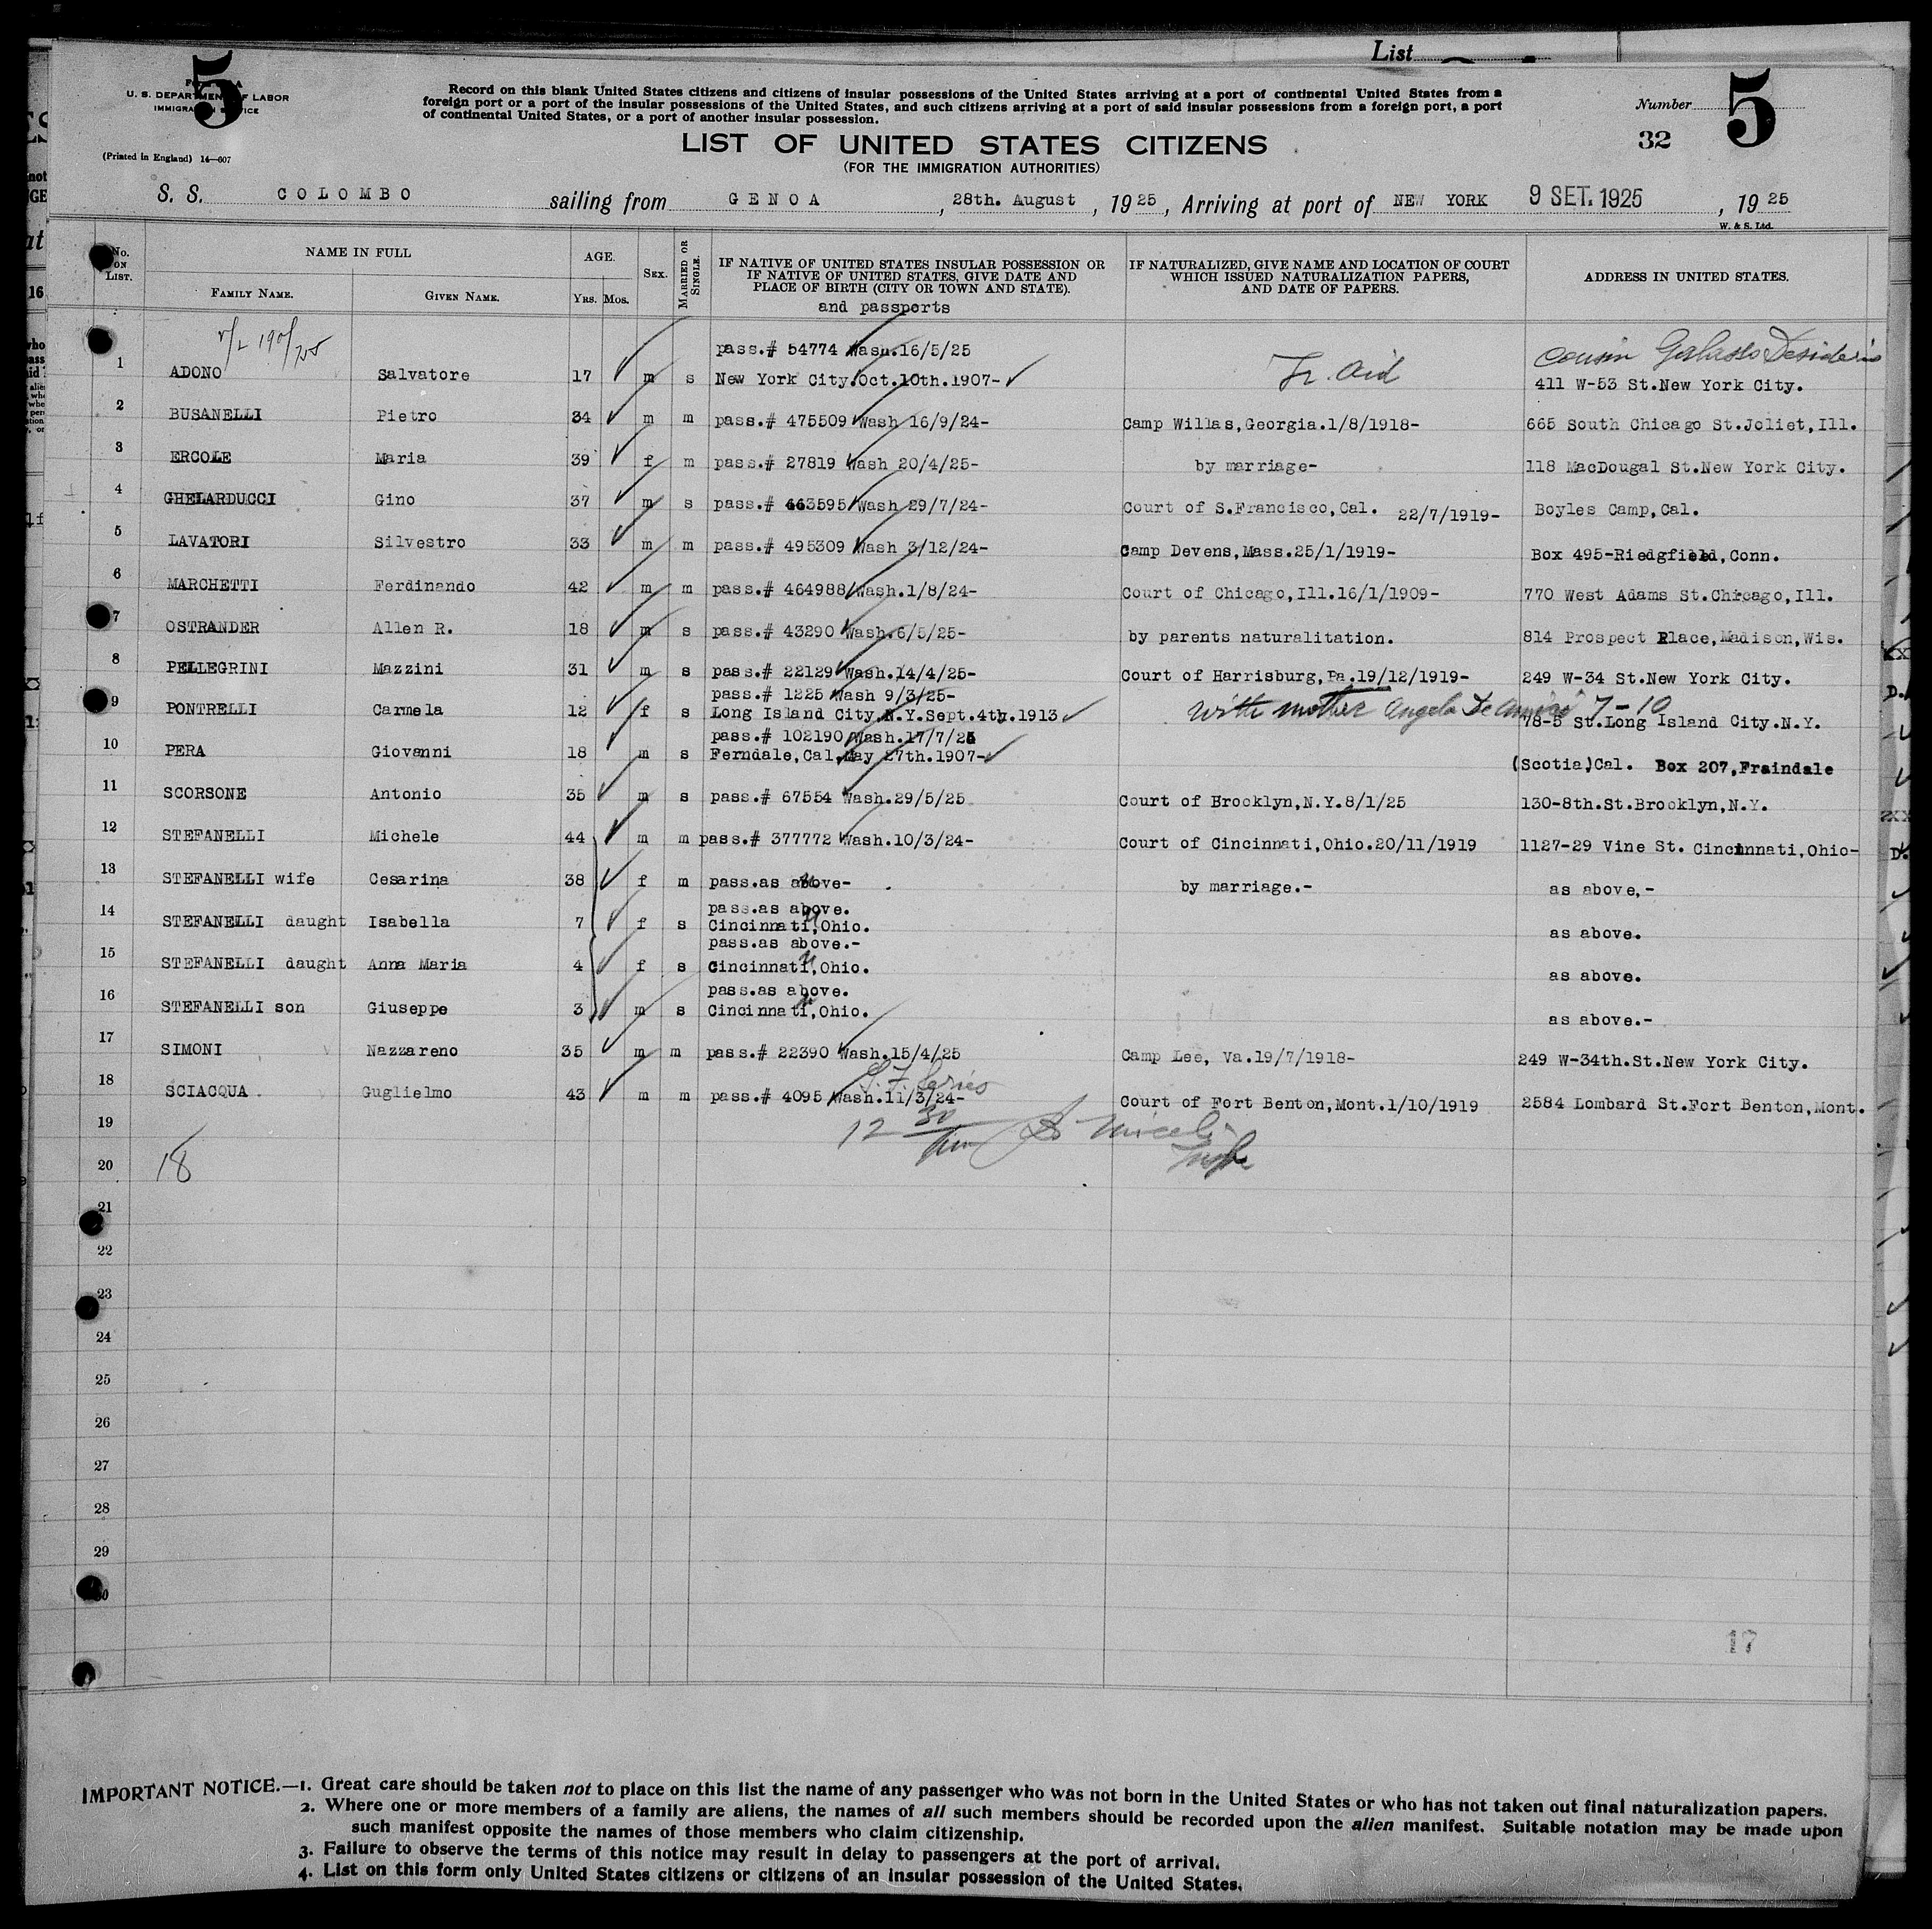 List
5
U. S. DEPARTMENT OF LABOR
IMMIGRATION SERVICE
(Printed in England) 14—607
Record on this blank United States citizens and citizens of insular possessions of the United States arriving at a port of continental United States from a
foreign port or a port of the insular possessions of the United States, and such citizens arriving at a port of said insular possessions from a foreign port, a port
of continental United States, or a port of another insular possession.
Number 5
32
LIST OF UNITED STATES CITIZENS
(FOR THE IMMIGRATION AUTHORITIES)
S. S. COLOMBO sailing from GENOA, 28th. August, 1925, Arriving at port of NEW YORK 9 SET. 1925, 1925
W. & S. Ltd.
No. ON LIST. NAME IN FULL AGE. SEX. MARRIED OR SINGLE. IF NATIVE OF UNITED STATES INSULAR POSSESSION OR IF NATIVE OF UNITED STATES, GIVE DATE AND PLACE OF BIRTH (CITY OR TOWN AND STATE). IF NATURALIZED, GIVE NAME AND LOCATION OF COURT WHICH ISSUED NATURALIZATION PAPERS, AND DATE OF PAPERS. ADDRESS IN UNITED STATES.
FAMILY NAME. GIVEN NAME. Yrs. Mos. and passports
pass.# 54774 Wash.16/5/25 cousin Galasso Desiderio
1 ADONO Salvatore 17 m s New York City.Oct.10th.1907- Tr. Aid 411 W-53 St.New York City.
2 BUSANELLI Pietro 34 m m pass.# 475509 Wash 16/9/24- Camp Willas,Georgia.1/8/1918- 665 South Chicago St.Joliet,Ill.
3 ERCOLE Maria 39 f m pass.# 27819 Wash 20/4/25- by marriage- 118 MacDougal St.New York City.
4 GHELARDUCCI Gino 37 m s pass.# 463595 Wash 29/7/24- Court of S.Francisco,Cal. 22/7/1919- Boyles Camp,Cal.
5 LAVATORI Silvestro 33 m m pass.# 495309 Wash 3/12/24- Camp Devens,Mass.25/1/1919- Box 495-Riedgfield,Conn.
6 MARCHETTI Ferdinando 42 m m pass.# 464988 Wash.1/8/24- Court of Chicago,Ill.16/1/1909- 770 West Adams St.Chicago,Ill.
7 OSTRANDER Allen R. 18 m s pass.# 43290 Wash.6/5/25- by parents naturalitation. 814 Prospect Place,Madison,Wis.
8 PELLEGRINI Mazzini 31 m s pass.# 22129 Wash.14/4/25- Court of Harrisburg,Pa.19/12/1919- 249 W-34 St.New York City.
pass.# 1225 Wash 9/3/25- with mother Angela 7-10
9 PONTRELLI Carmela 12 f s Long Island City.N.Y.Sept.4th.1913 78-5 St.Long Island City.N.Y.
pass.# 102190 Wash.17/7/25
10 PERA Giovanni 18 m s Ferndale,Cal.May 27th.1907- (Scotia)Cal. Box 207,Fraindale
11 SCORSONE Antonio 35 m s pass.# 67554 Wash.29/5/25 Court of Brooklyn,N.Y.8/1/25 130-8th.St.Brooklyn,N.Y.
12 STEFANELLI Michele 44 m m pass.# 377772 Wash.10/3/24- Court of Cincinnati,Ohio.20/11/1919 1127-29 Vine St. Cincinnati,Ohio-
13 STEFANELLI wife Cesarina 38 f m pass.as above- by marriage.- as above,-
pass.as above.
14 STEFANELLI daught Isabella 7 f s Cincinnati,Ohio. as above.
pass.as above.-
15 STEFANELLI daught Anna Maria 4 f s Cincinnati,Ohio. as above.
pass.as above.
16 STEFANELLI son Giuseppe 3 m s Cincinnati,Ohio. as above.-
17 SIMONI Nazzareno 35 m m pass.# 22390 Wash.15/4/25 Camp Lee, Va.19/7/1918- 249 W-34th.St.New York City.
18 SCIACQUA Guglielmo 43 m m pass.# 4095 Wash.11/3/24- Court of Fort Benton,Mont.1/10/1919 2584 Lombard St.Fort Benton,Mont.
19 12 30
20 18
21
22
23
24
25
26
27
28
29
30
17
IMPORTANT NOTICE.—1. Great care should be taken not to place on this list the name of any passenger who was not born in the United States or who has not taken out final naturalization papers.
2. Where one or more members of a family are aliens, the names of all such members should be recorded upon the alien manifest. Suitable notation may be made upon
such manifest opposite the names of those members who claim citizenship.
3. Failure to observe the terms of this notice may result in delay to passengers at the port of arrival.
4. List on this form only United States citizens or citizens of an insular possession of the United States.